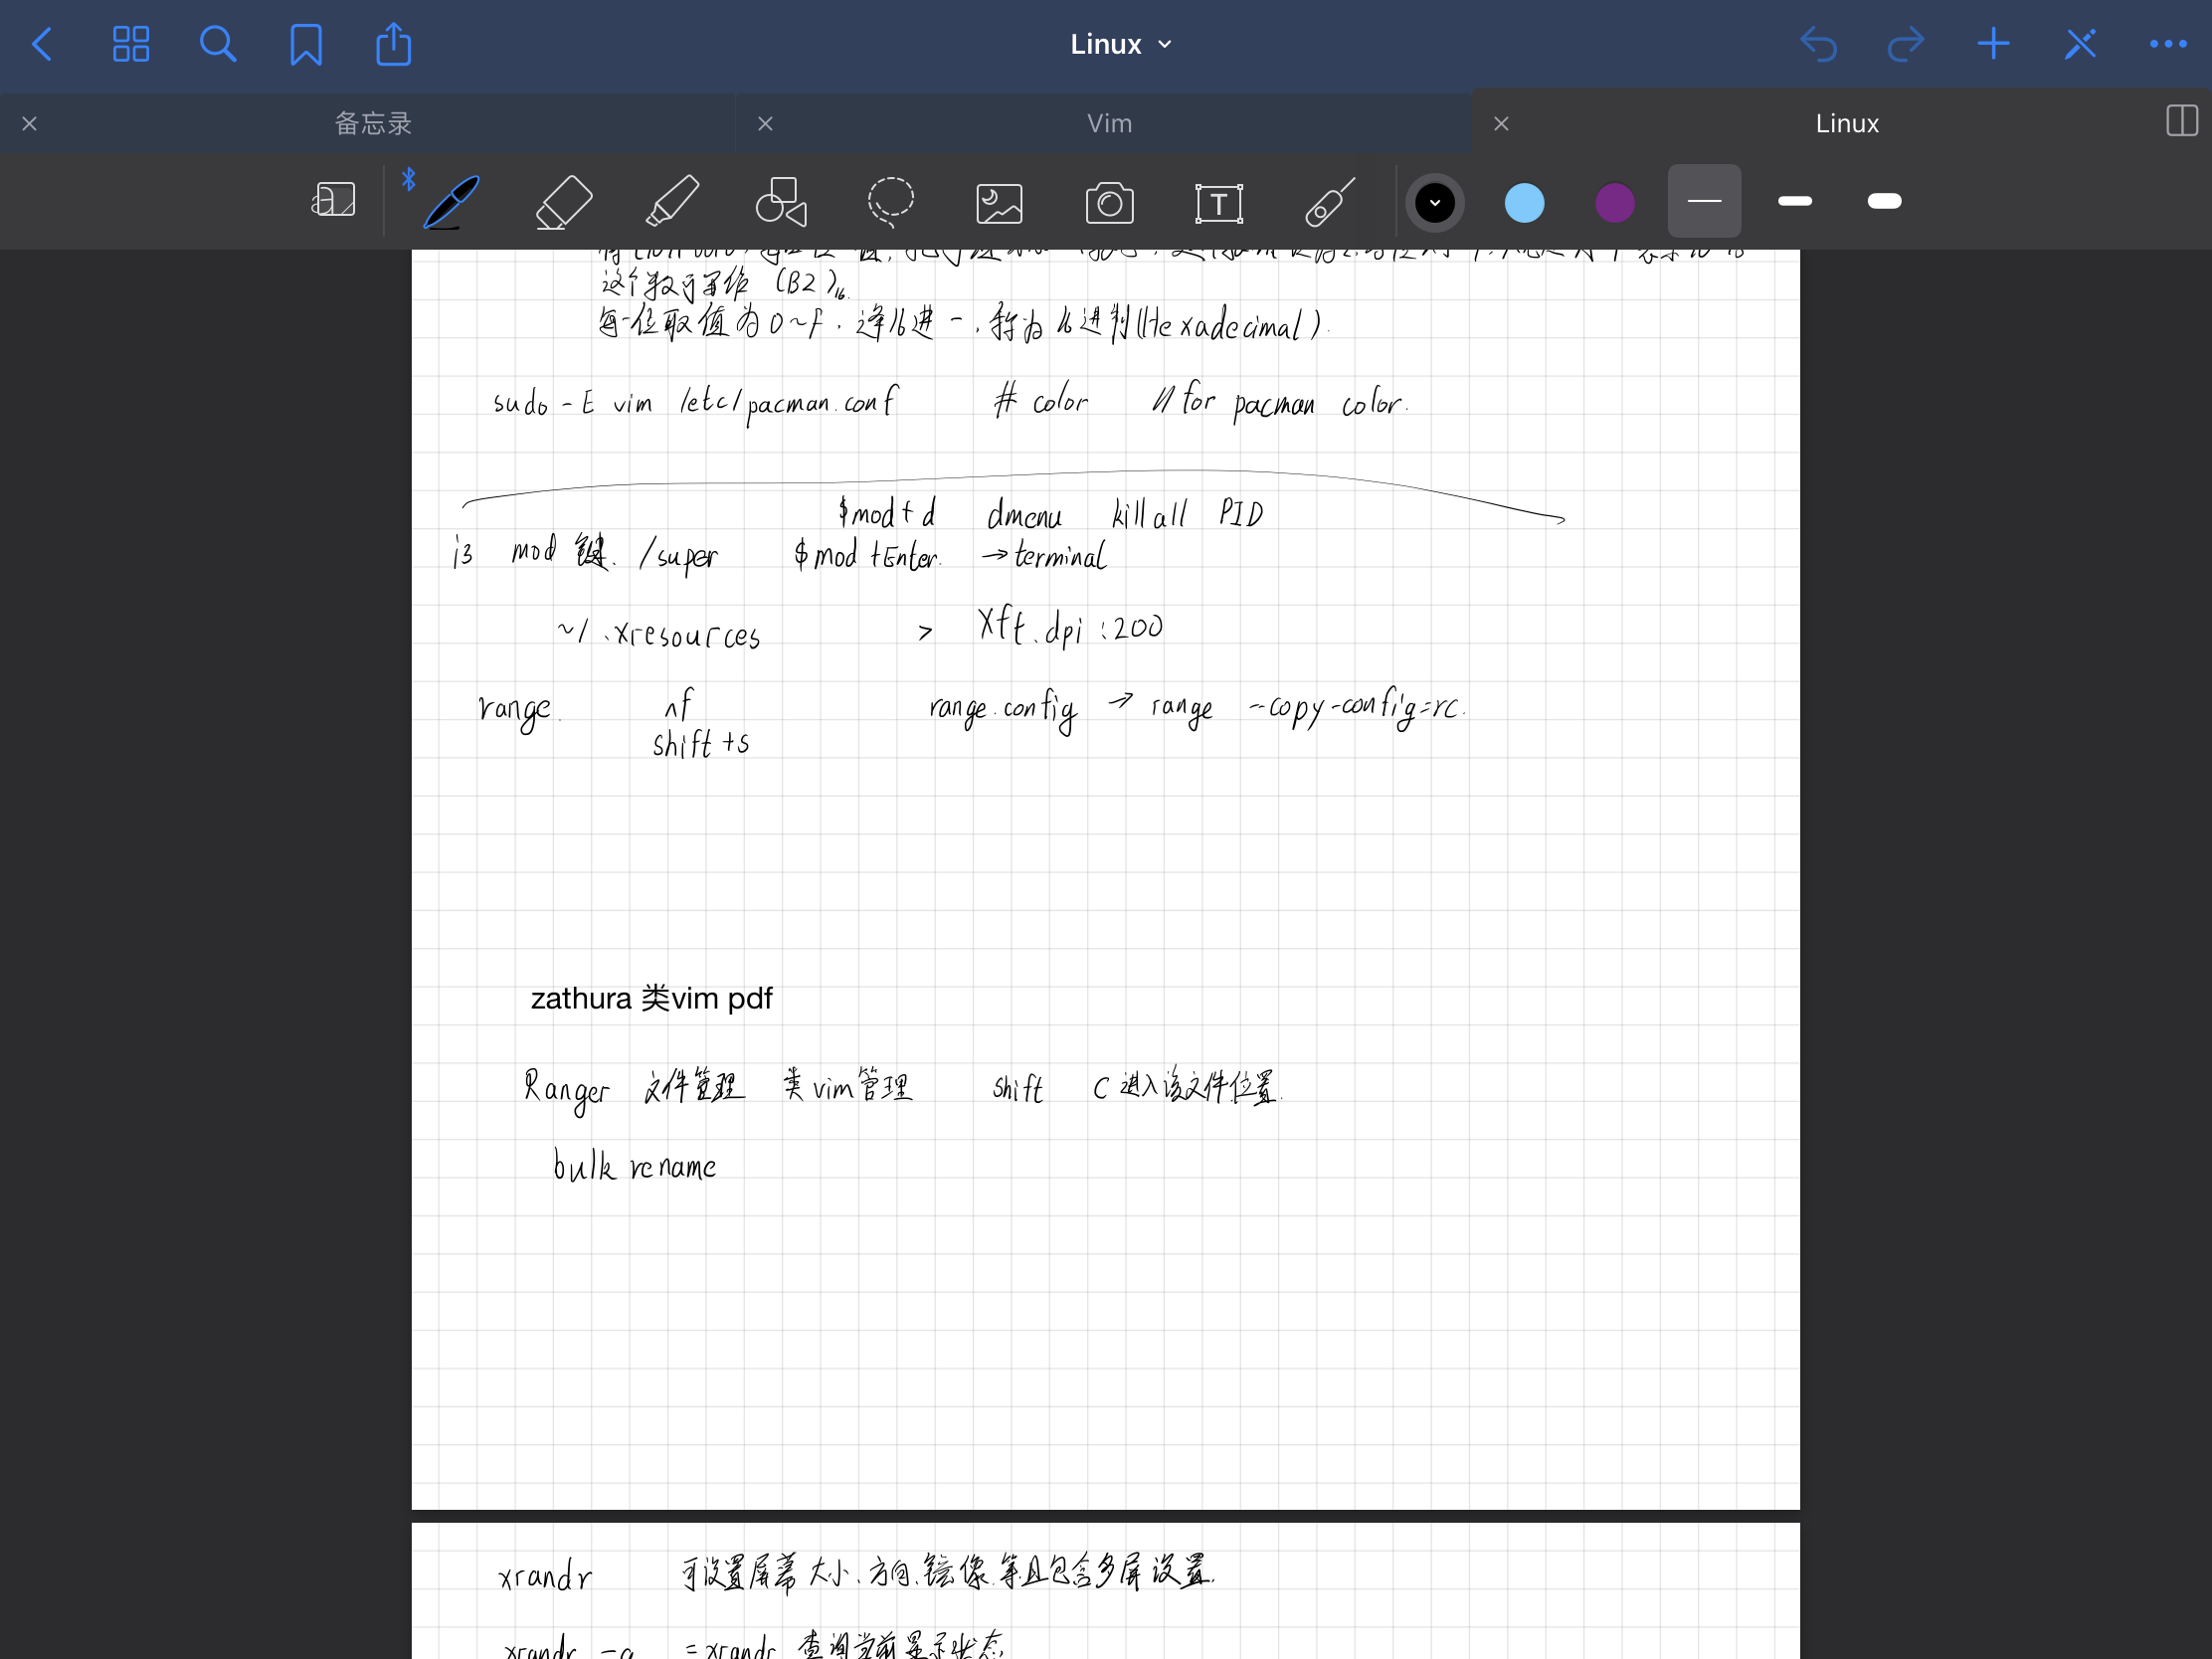 Linux
备忘录
Vim
Linux
这个数可写作 (B2)16.
每一位取值为0~F,逢16进一,称为16进制(Hexadecimal).
sudo -E vim /etc/pacman.conf # color // for pacman color.
$mod+d dmenu killall PID
i3 mod 键. /super $mod +Enter. →terminal
~/.xresources > Xft.dpi:200
range. nf range.config → range --copy-config=rc.
shift +s
zathura 类vim pdf
Ranger 文件管理 类vim管理 shift C 进入该文件位置.
bulk rename
xrandr 可设置屏幕大小、方向、镜像.等且包含多屏设置.
xrandr -q =xrandr 查询当前显示状态